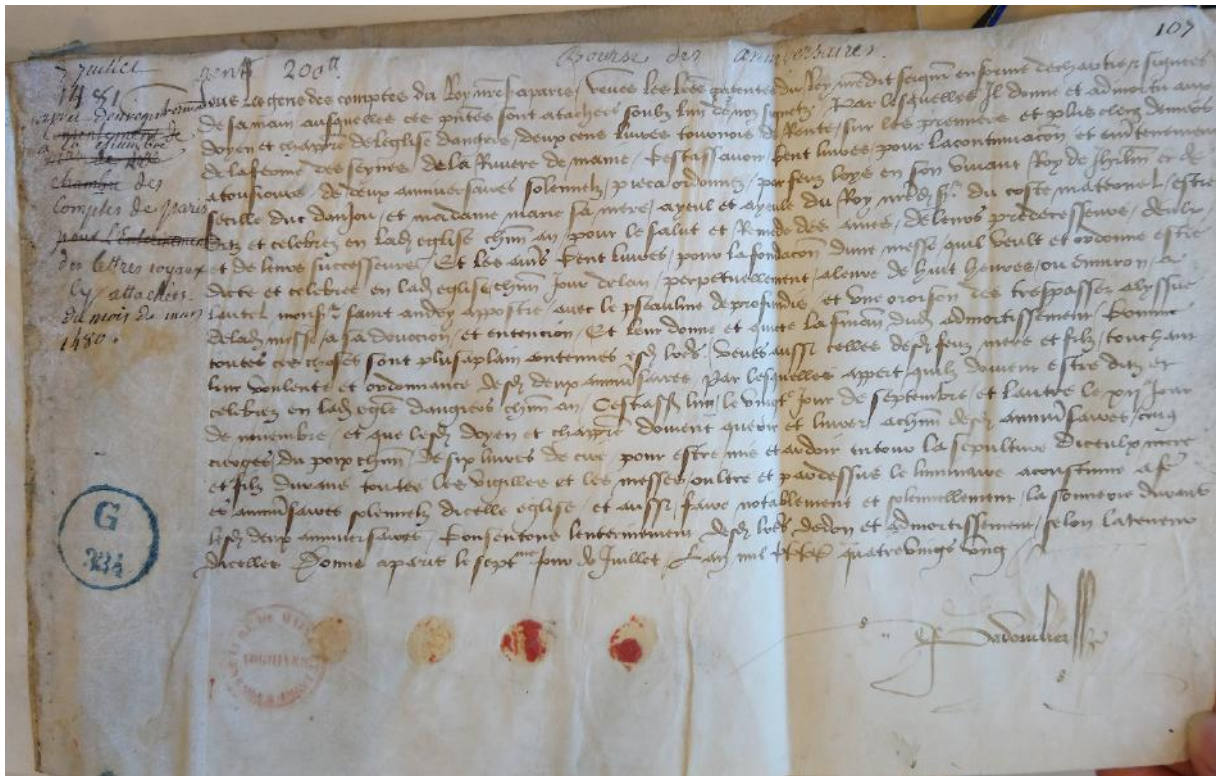 107
Bourse des anniversaires.
7 juillet
1481
chambre des
comptes de paris
des lettres royaux
cy attachées
du mois de mars
1480.
200tt
Nous Les gens des comptes du Roy nre sr a paris, Veues les lres patentes du Roy nredit seigneur en forme de chartre signees
de sa main ausquelles ces pntes sont atachees soubz lun de noz signetz, Par lesquelles Il donne et admortist aux
doyen et chappre de leglise dangiers, deux cens livres tournois de Rente, sur les premiers et plus clers deniers
de la ferme des seynes de la Riviere de maine, Cestassavoir Cent livres, pour la continuacion et entretenement
atousiours, de deux anniversaires solennelz, pieca ordonnez, par feux loys en son vivant Roy de Jhrlm et de
secille duc danjou, et madame marie sa mere, ayeul et ayeule du Roy nredit sr du coste maternel, estre
ditz et celebrez en lad eglise chun an, pour le salut et Remede des ames, de leurs predecesseurs, deulx
et de leurs successeurs, Et les aultres Cent livres, pour la fondacion dune messe quil veult et ordonne estre
dicte et celebree en lad eglise, chun Jour de lan, perpetuellement, a leure de huit heures, ou environ, a
lautel monsr saint andry appostre avec le pseaulme de profundis, et une oroison des trespassez a lyssue
de lad messe, a sa devocion, et entencion, Et leur donne et quicte la finance dud admortissement, Comme
toutes ces choses sont plus a plain contenues esd lectres, Veues aussi celles desd feuz mere et filz, touchant
leur voulente et ordonnance desd deux anniversaires, Par lesquelles appert, quilz doivent estre ditz et
celebrez en lad eglise dangiers chun an, Cestassavoir lun, le vingte Jour de septembre, et lautre le xije Jour
de novembre, et que lesd doyen et chappre doivent querir et livrer a chun desd anniversaires, cinq
cierges, du poix chun, de six livres de cire pour estre mis et ardoir entour la sepulture diceulx mere
et filz durans toutes les vigilles et les messes, oultre et pardessus le luminaire acoustume a fe
es anniversaires solennelz dicelle eglise, et aussi faire notablement et solennellement, la sonnerie durant
lesd deux anniversaires, Consentons lenterinement desd lectres de don et admortissement, selon la teneur
dicelles, Donne a paris le septme Jour de Juillet, Lan mil CCCC quatre vings ung
G